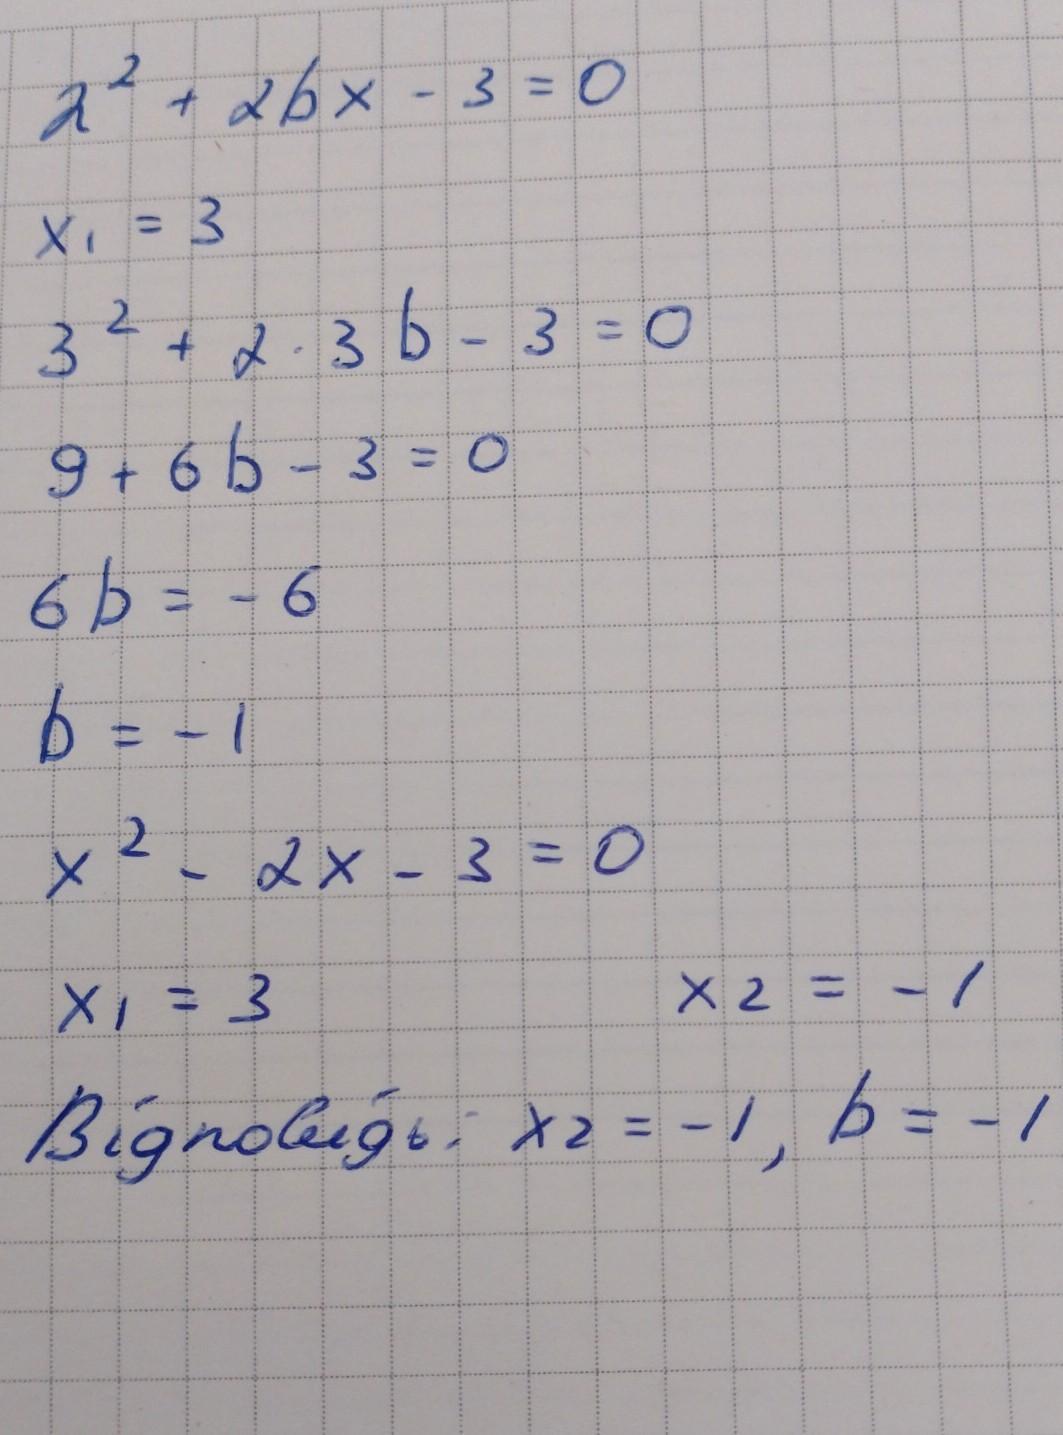 2² + 2bx - 3 = 0
x₁ = 3
3² + 2 · 3b - 3 = 0
9 + 6b - 3 = 0
6b = -6
b = -1
x² - 2x - 3 = 0
x₁ = 3 x2 = -1
Відповідь: x2 = -1, b = -1